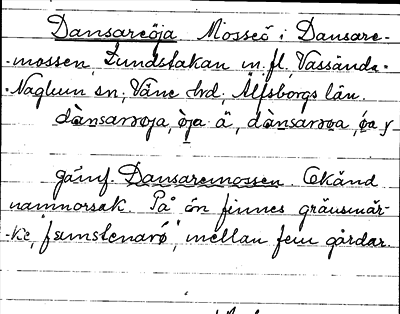 Dansareöja. Mosseö i Dansare-
-mossen, Lundstakan m. fl., Vassända-
-Naglum sn, Väne hd, Älfsborgs län.
dànsarəoja, òja ä, dànsarəa,
Jämf. Dansaremossen. Okänd
namnorsak. På ön finnes gränsmär-
-ke, "femstenarö", mellan fem gårdar.